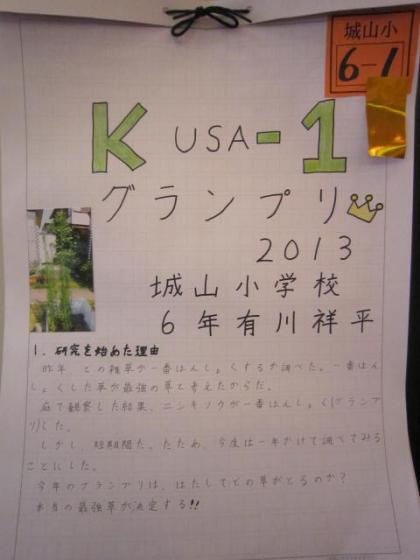 城山小
6-1
K USA-1
グランプリ
2013
城山小学校
6年有川祥平
1. 研究を始めた理由
昨年、どの雑草が一番はんしょくするか調べた。一番はん
しょくした草が最強の草と考えたからだ。
庭で観察した結果、ニシキソウが一番はんしょく(グランプ
リ)した。
しかし、短期間だったため、今度は一年かけて調べてみる
ことにした。
今年のグランプリは、はたしてどの草がとるのか?
本当の最強草が決定する!!